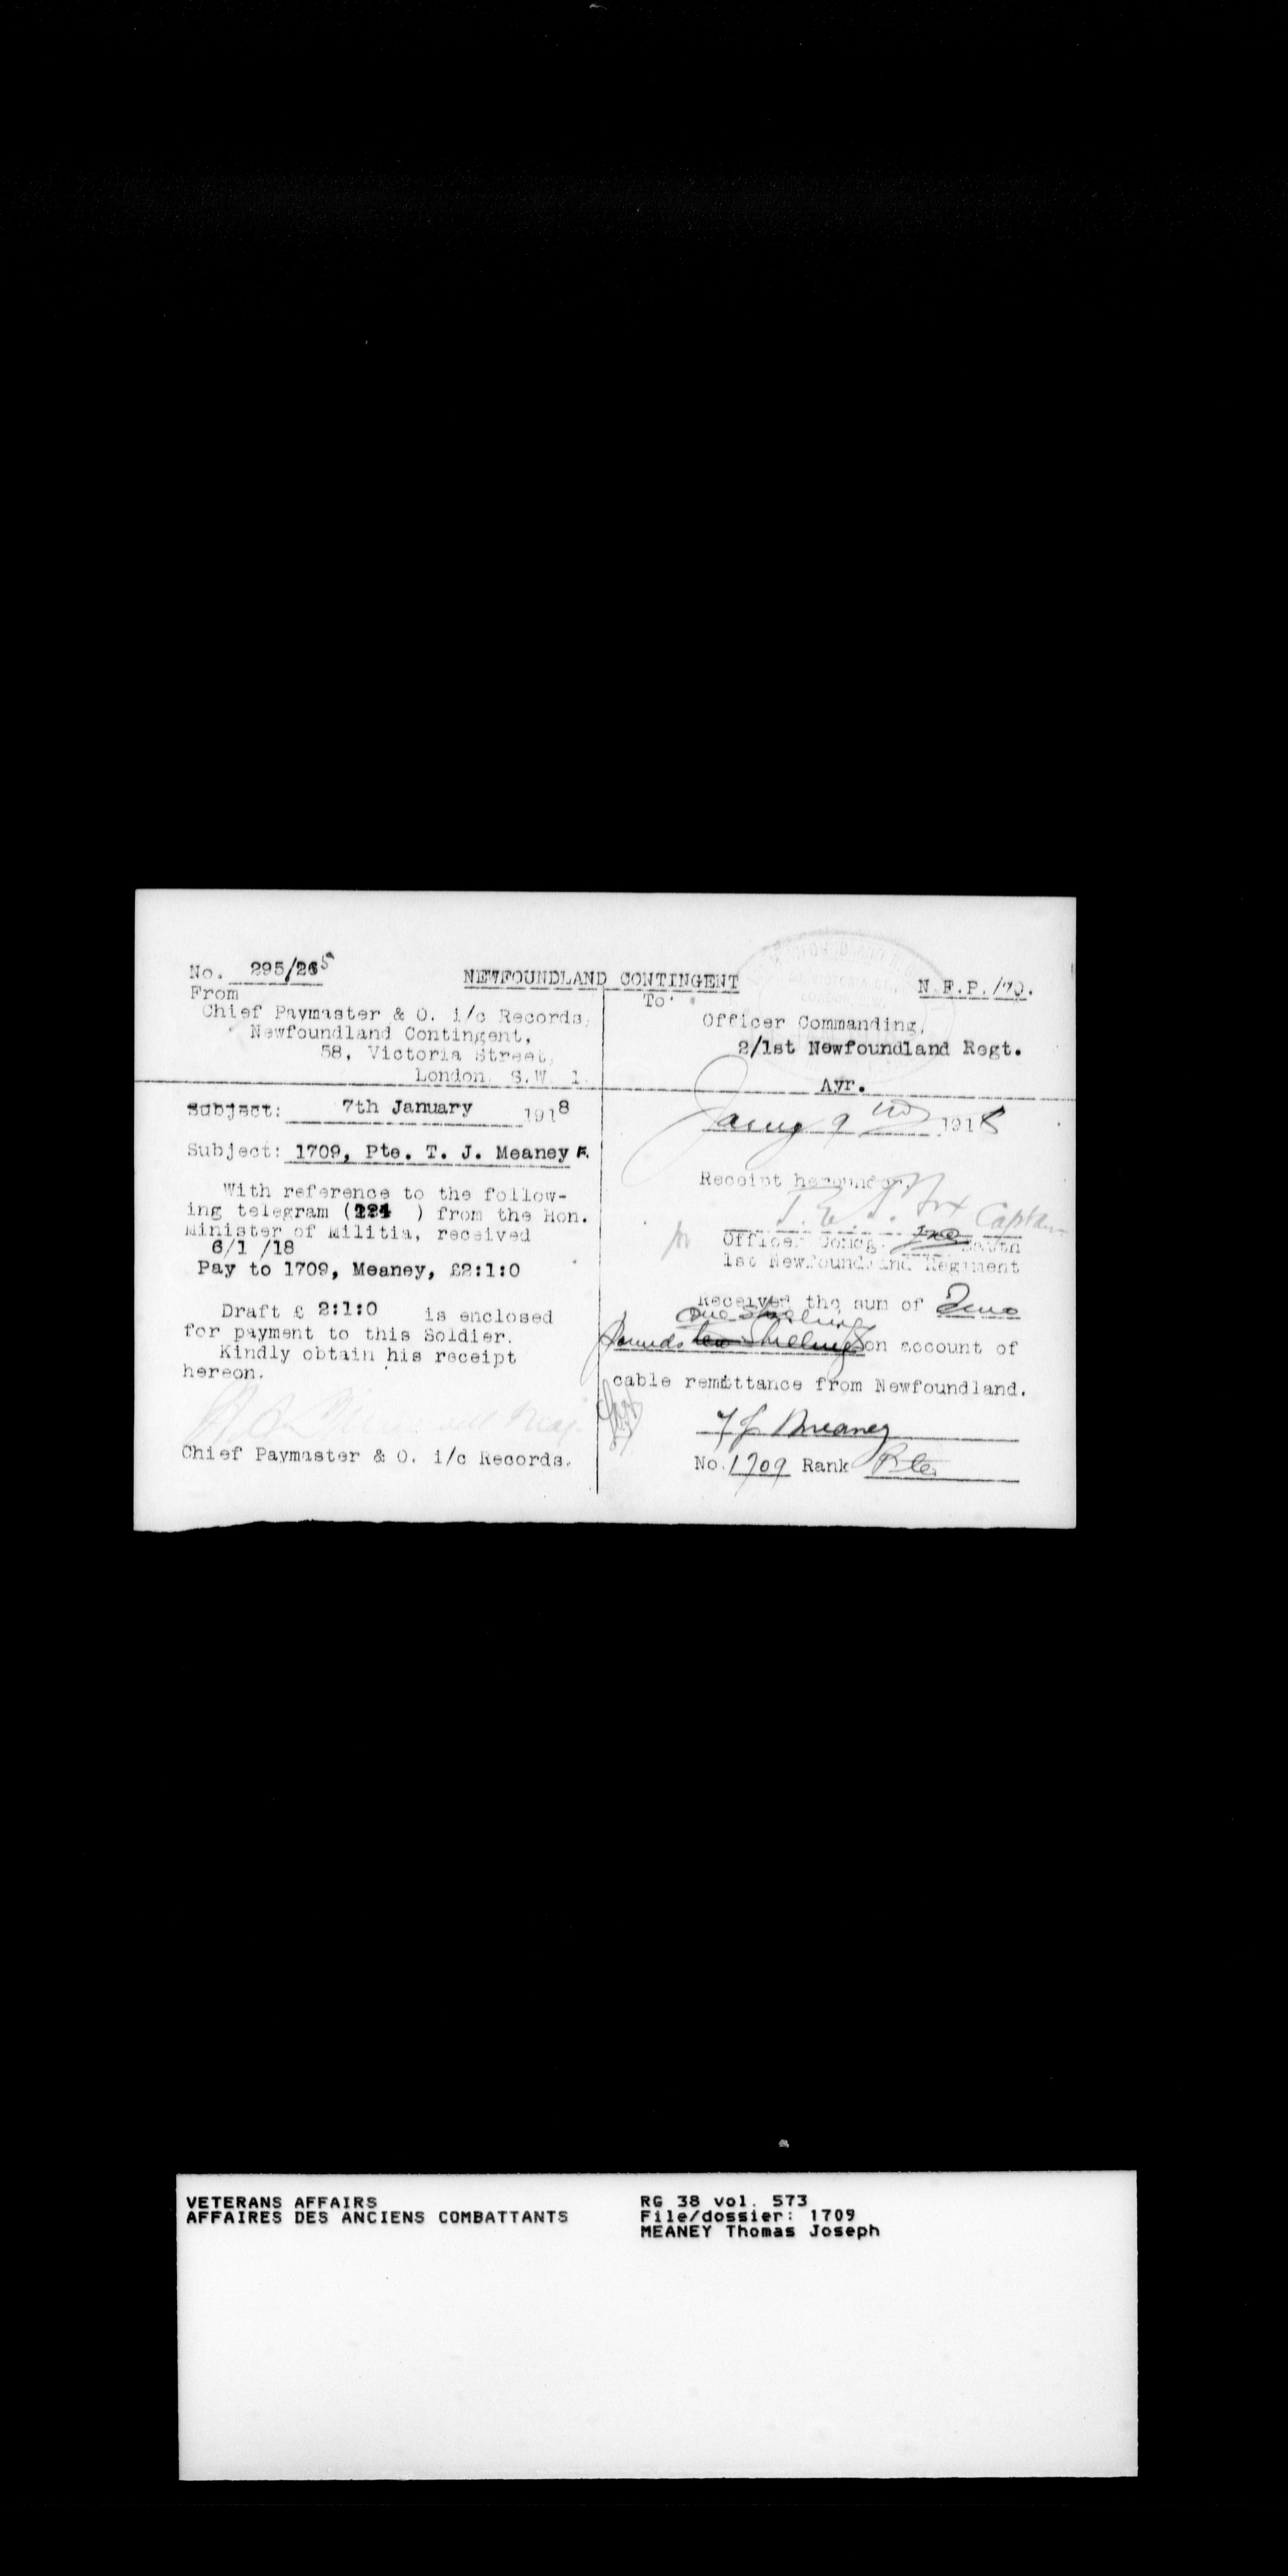 No. 295/265
NEWFOUNDLAND CONTINGENT
N.F.P./70.
From
Chief Paymaster & O. i/c Records,
Newfoundland Contingent,
58, Victoria Street,
London, S.W. 1.
Subject: 7th January 1918
Subject: 1709, Pte. T. J. Meaney
With reference to the follow-
ing telegram (224 ) from the Hon.
Minister of Militia, received
6/1 /18
Pay to 1709, Meaney, £2:1:0
Draft £ 2:1:0 is enclosed
for payment to this Soldier.
Kindly obtain his receipt
hereon.
Chief Paymaster & O. i/c Records.
To
Officer Commanding,
2/1st Newfoundland Regt.
Ayr.
Jany 9 1918
Receipt hereunder.
Captain
for Officer Comdg. 2nd Battn
1st Newfoundland Regiment
Received the sum of Two
one shilling
Pounds ten Shillings on account of
cable remittance from Newfoundland.
T J Meaney
No. 1709 Rank Pte.
VETERANS AFFAIRS
AFFAIRES DES ANCIENS COMBATTANTS
RG 38 vol. 573
File/dossier: 1709
MEANEY Thomas Joseph